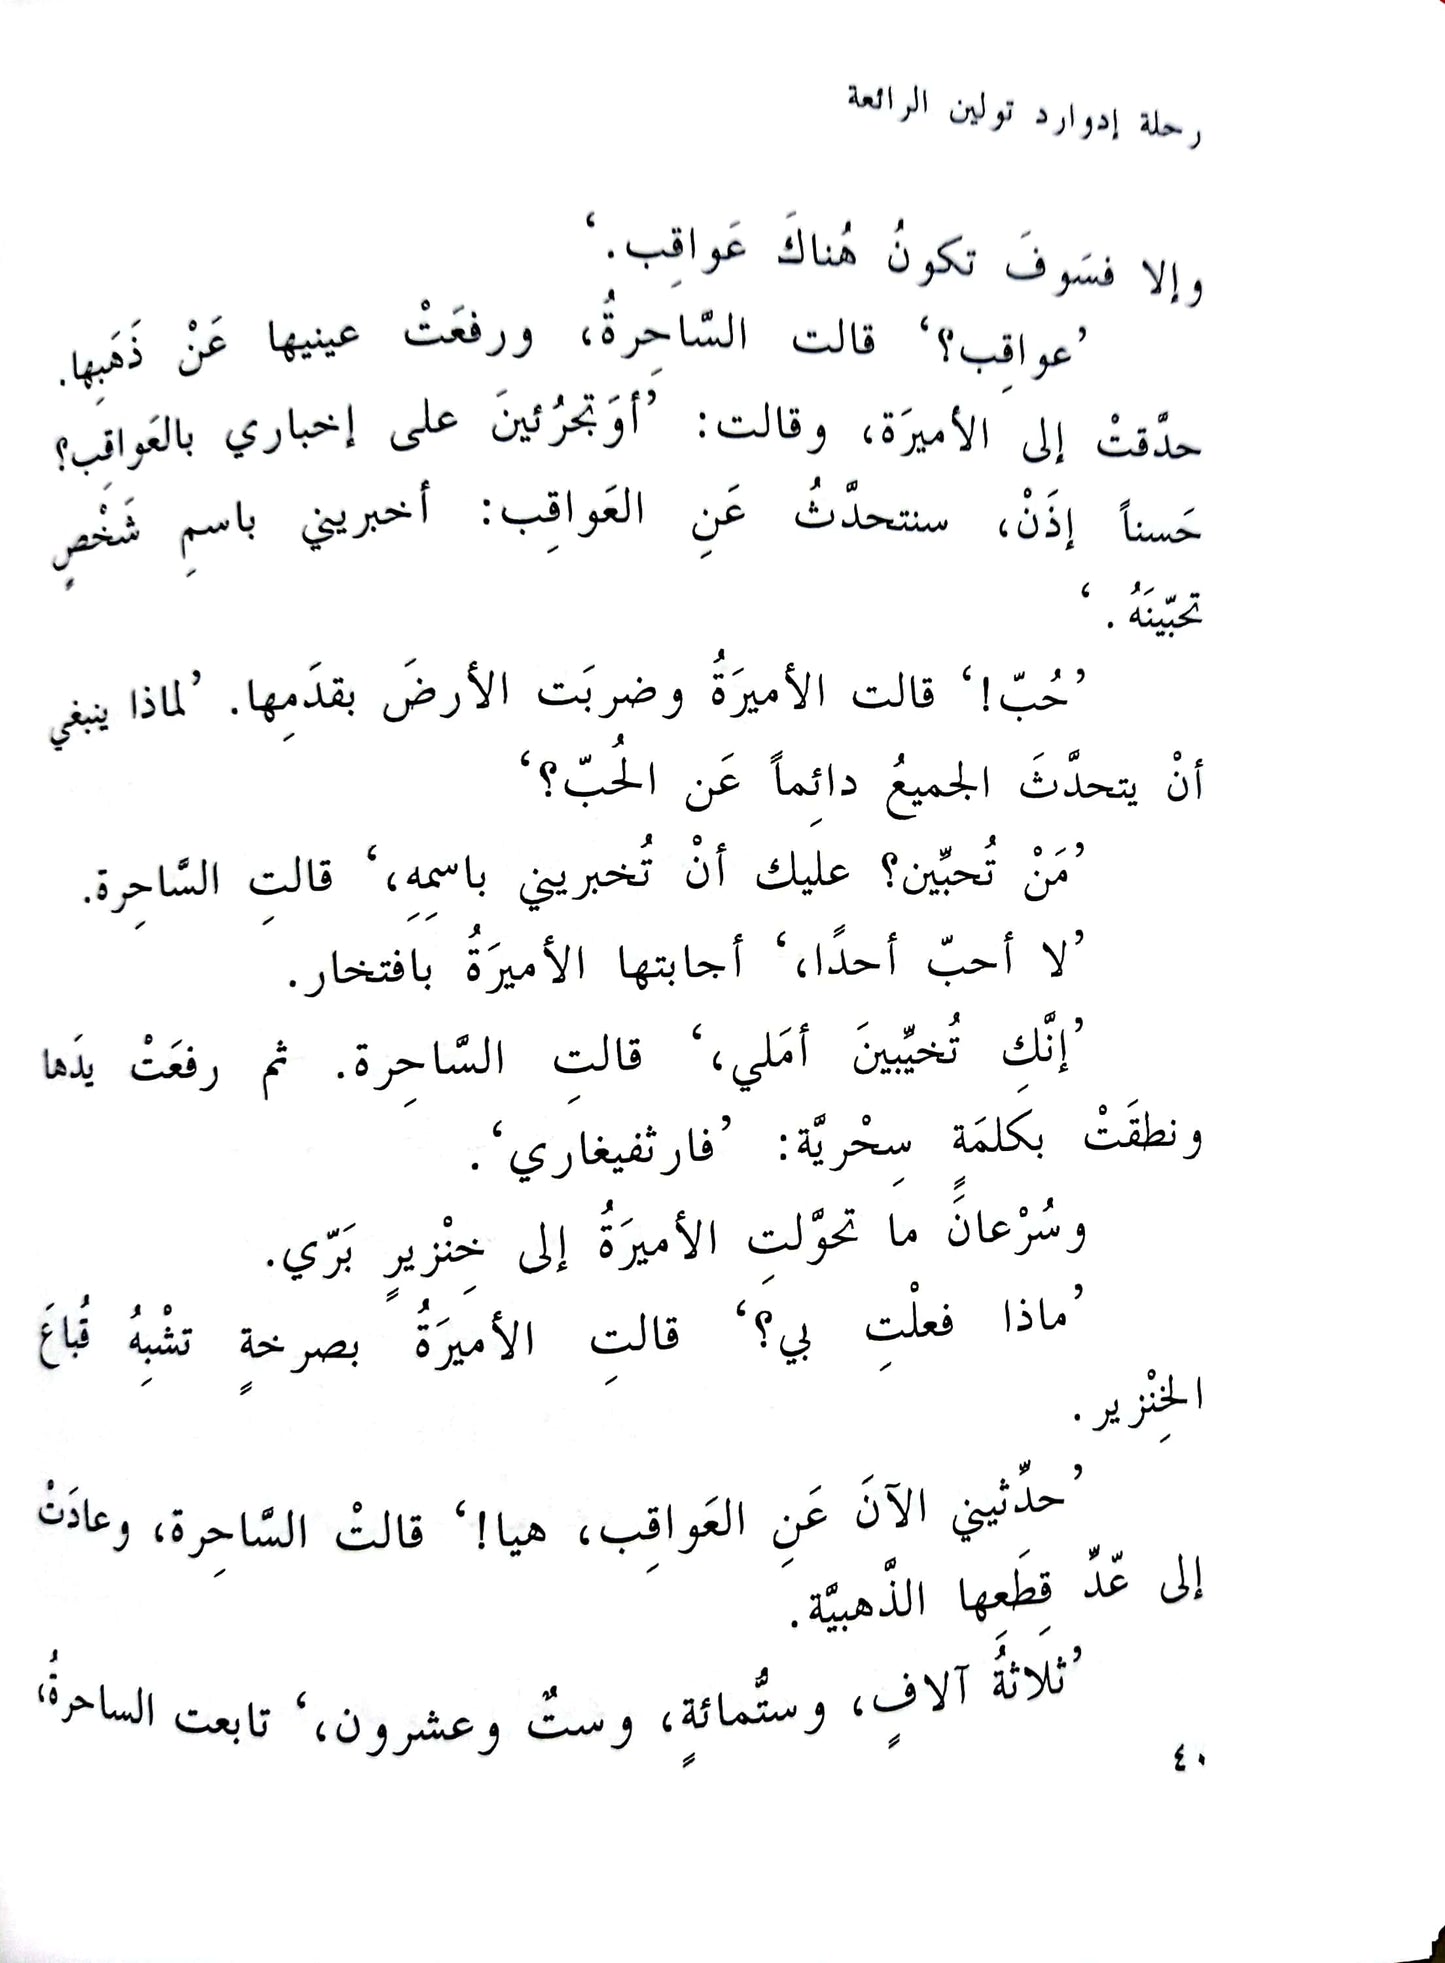 رحلة إدوارد تولين الرائعة
وإلا فسَوفَ تكونُ هُناكَ عَواقِب.‘
’عواقِب؟‘ قالت السَّاحِرةُ، ورفعَتْ عينيها عَنْ ذَهَبِها.
حدَّقتْ إلى الأميرَة، وقالت: ’أوَتجرُئينَ على إخباري بالعَواقِب؟
حَسناً إذَنْ، سنتحدَّثُ عَنِ العَواقِب: أخبريني باسمِ شَخْصٍ
تحبّينَهُ.‘
’حُبّ!‘ قالت الأميرَةُ وضربَت الأرضَ بقدَمِها. ’لماذا ينبغي
أنْ يتحدَّثَ الجميعُ دائِماً عَن الحُبّ؟‘
’مَنْ تُحبِّين؟ عليك أنْ تُخبريني باسمِهِ،‘ قالتِ السَّاحِرة.
’لا أحبّ أحدًا،‘ أجابتها الأميرَةُ بافتخار.
’إنَّكِ تُخيِّبينَ أمَلي،‘ قالتِ السَّاحِرة. ثم رفعَتْ يدَها
ونطقَتْ بكلمَةٍ سِحْريَّة: ’فارثفيغاري‘.
وسُرْعانَ ما تحوَّلتِ الأميرَةُ إلى خِنْزيرٍ بَرّي.
’ماذا فعلْتِ بي؟‘ قالتِ الأميرَةُ بصرخةٍ تشْبِهُ قُباعَ
الخِنْزير.
’حدِّثيني الآنَ عَنِ العَواقِب، هيا!‘ قالتْ السَّاحِرة، وعادَتْ
إلى عّدِّ قِطَعِها الذَّهبيَّة.
’ثلاثةُ آلافٍ، وستُّمائةٍ، وستٌ وعشرون،‘ تابعت الساحرةُ،
٤٠